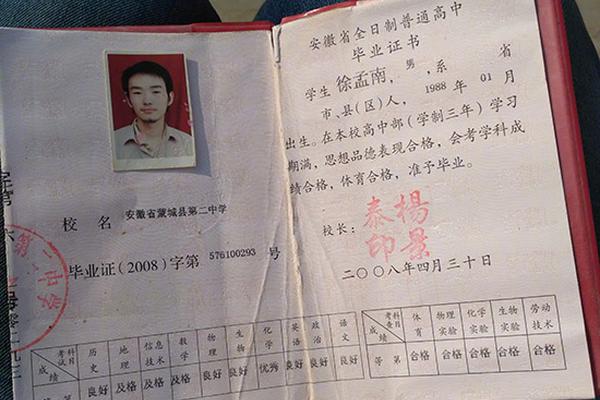 校名 安徽省蒙城县第二中学
毕业证(2008)字第 576100293 号
考试科目 历史 地理 信息技术 数学 物理 生物 化学 英语 政治 语文
成绩 良好 及格 及格 及格 良好 良好 优秀 良好 良好 良好
第二中学
安徽省全日制普通高中
毕业证书
学生 徐孟南,男,系 省
市、县(区)人,1988 年 01 月
出生。在本校高中部(学制三年)学习
期满,思想品德表现合格,会考学科成
绩合格,体育合格,准予毕业。
校长:
楊景泰印
二〇〇八年四月三十日
考查科目 体育 物理实验 化学实验 生物实验 劳动技术
成绩 等第 合格 合格 合格 合格 合格